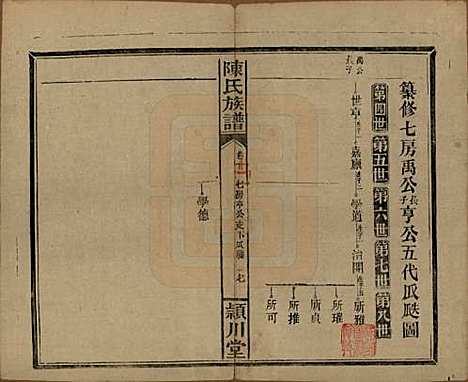 纂修七房禹公長子亨公五代瓜瓞圖
第四世 第五世 第六世 第七世 第八世
禹公長子
世亨 嘉 學道 治國 所雅
所瑾
所貞
所推
所可
陳氏族譜
七房亨公支下瓜瓞
潁川堂
學德